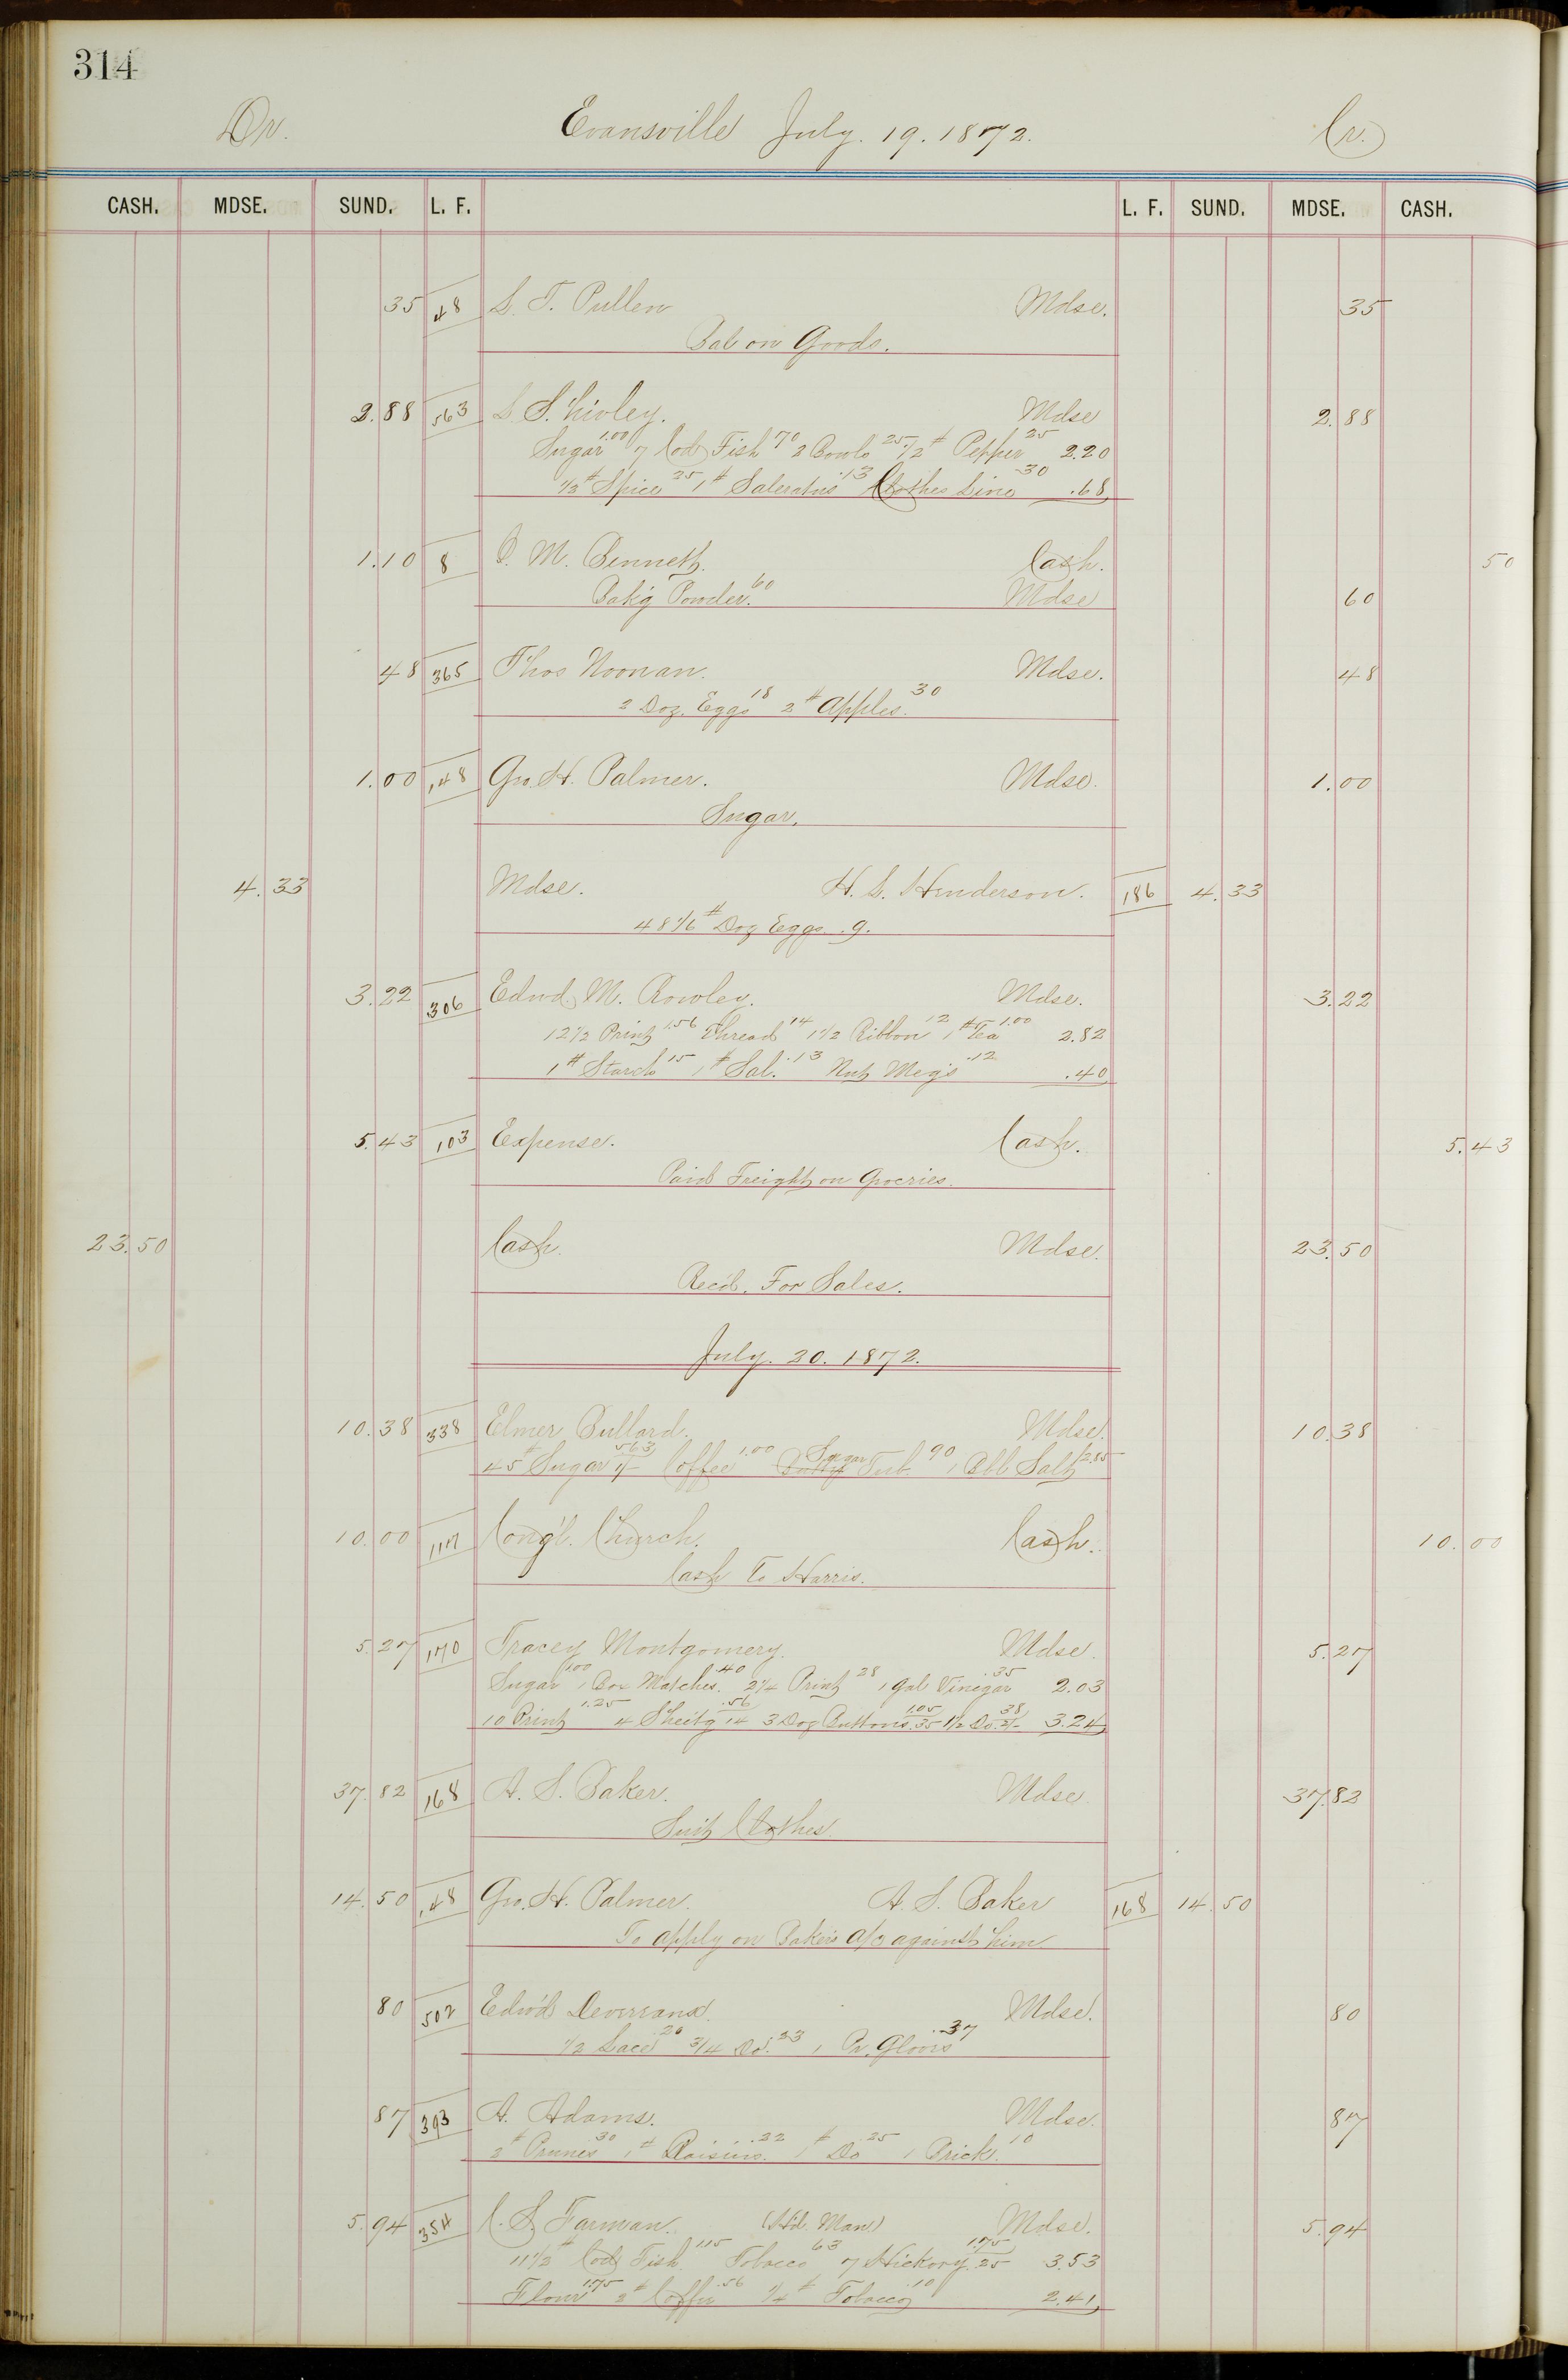 314
Dr. Evansville July. 19. 1872. Cr.
CASH. MDSE. SUND. L. F. L. F. SUND. MDSE. CASH.
35 48 S. T. Pullen Mdse. 35
Bal on Goods.
2.88 563 S. Shivley. Mdse 2.88
Sugar 1.00 7 Cod Fish 70 2 Bowls 25 1/2 # Pepper 25 2.20
1/2 # Spice 25 1 # Saleratus .13 Clothes Line 30 .68
1.10 8 C. M. Bennett. Cash. 50
Bak'g Powder. 60 Mdse 60
48 365 Thos Noonan. Mdse. 48
2 Doz. Eggs 18 2 # Apples. 30
1.00 148 Geo. H. Palmer. Mdse. 1.00
Sugar.
4.33 Mdse. H. S. Henderson. 186 4.33
48 1/6 # Doz Eggs .9.
3.22 306 Edwd. M. Rowley. Mdse. 3.22
12 1/2 Print 1.56 Thread 14 1 1/2 Ribbon 12 1 # Tea 1.00 2.82
1 # Starch 15 1 # Sal. .13 Nut Meg's .12 .40
5.43 103 Expense. Cash. 5.43
Paid Freight on Groceries.
23.50 Cash. Mdse. 23.50
Rec'd. For Sales.
July. 20. 1872.
10.38 338 Elmer Bullard. Mdse. 10.38
45 # Sugar 563 Coffee 1.00 Sugar Tub 90 1 Bbl Salt 2.85
10.00 117 Cong'l. Church. Cash. 10.00
Cash To Harris.
5.27 170 Tracey Montgomery. Mdse. 5.27
Sugar 1.00 1 Box Matches. .40 2 1/4 Print 28 1 gal Vinegar .35 2.03
10 Print 1.25 4 Sheit'g .56 14 3 Doz Buttons 1.05 .35 1 1/2 Do. 38 2/- 3.24
37.82 168 A. S. Baker. Mdse 37.82
Suit Clothes.
14.50 148 Geo. H. Palmer. A. S. Baker 168 14.50
To apply on Baker's a/c against him
80 502 Edw'd Mdse. 80
1/2 Lace .20 3/4 Do. .23 1 Pr. Gloves .37
87 393 A. Adams. Mdse. 87
2 # Prunes 30 1 # Raisins. .22 1 # Do .25 1 Brick. 10
5.94 354 C. S. Farman. (H'd. Man) Mdse. 5.94
11 1/2 # Cod Fish. 1.15 Tobacco 63 7 Hickory 1.75 .25 3.53
Flour 1.75 2 # Coffee .56 1/4 # Tobacco .10 2.41